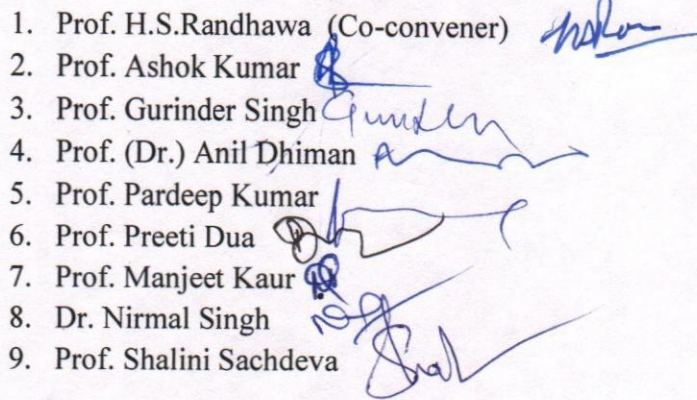 1. Prof. H.S.Randhawa (Co-convener)
2. Prof. Ashok Kumar
3. Prof. Gurinder Singh
4. Prof. (Dr.) Anil Dhiman
5. Prof. Pardeep Kumar
6. Prof. Preeti Dua
7. Prof. Manjeet Kaur
8. Dr. Nirmal Singh
9. Prof. Shalini Sachdeva